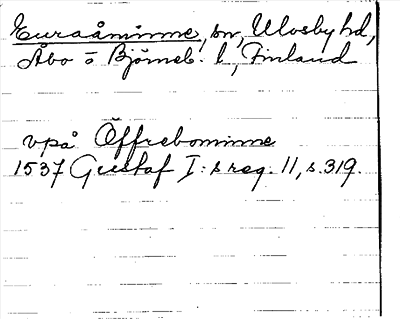 Euraåminne, sn, Ulvsby hd,
Åbo o Björneb. l., Finland
vpå Öffrebominne
1537 Gustaf I:s reg. 11, s. 319.